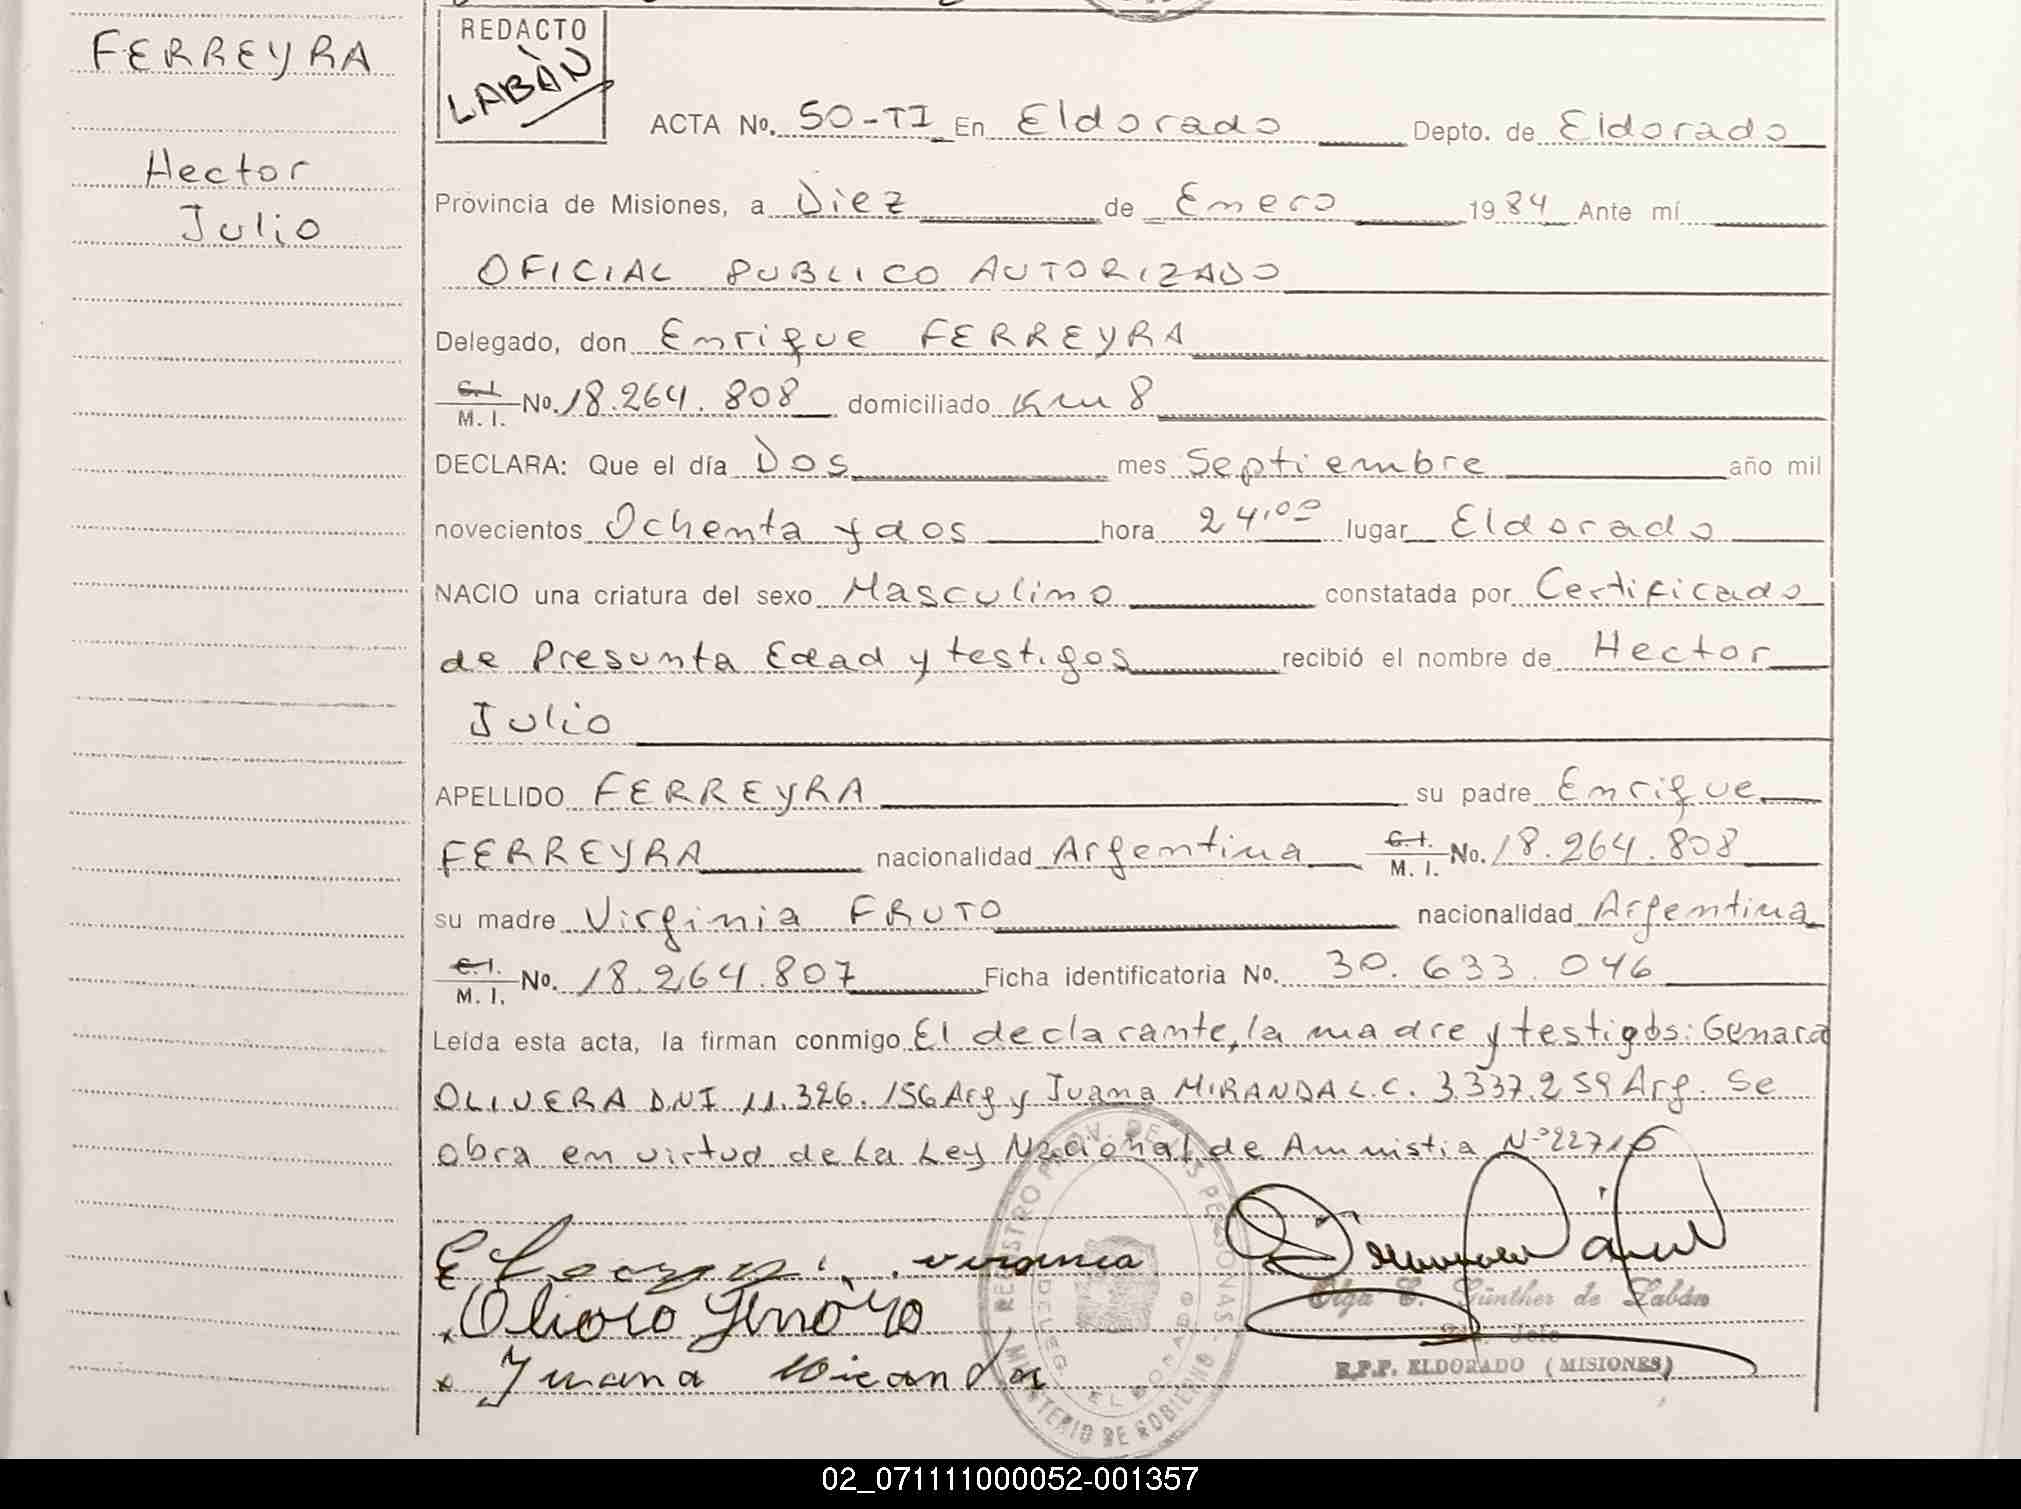 FERREYRA
Hector
Julio
REDACTO
LABÀN
ACTA No. 50-TI En Eldorado Depto. de Eldorado
Provincia de Misiones, a Diez de Enero 1984 Ante mí
OFICIAL PUBLICO AUTORIZADO
Delegado, don Enrique FERREYRA
C.I. M.I. No. 18.264.808 domiciliado Km 8
DECLARA: Que el día Dos mes Septiembre año mil
novecientos Ochenta y dos hora 24,00 lugar Eldorado
NACIO una criatura del sexo Masculino constatada por Certificado
de Presunta Edad y testigos recibió el nombre de Hector
Julio
APELLIDO FERREYRA su padre Enrique
FERREYRA nacionalidad Argentina C.I. M.I. No. 18.264.808
su madre Virginia FRUTO nacionalidad Argentina
C.I. M.I. No. 18.264.807 Ficha identificatoria No. 30.633.046
Leída esta acta, la firman conmigo El declarante, la madre y testigos: Genara
OLIVERA DNI 11.326.156 Arg y Juana MIRANDA L.C. 3.337.259 Arg. Se
obra en virtud de la Ley Nacional de Amnistia Nº 22710
virginia
Juana Miranda
REGISTRO PROV. DE LAS PERSONAS
MINISTERIO DE GOBIERNO
ELDORADO
Olga E. Günther de Labán
Jefe
R.P.P. ELDORADO (MISIONES)
02_071111000052-001357